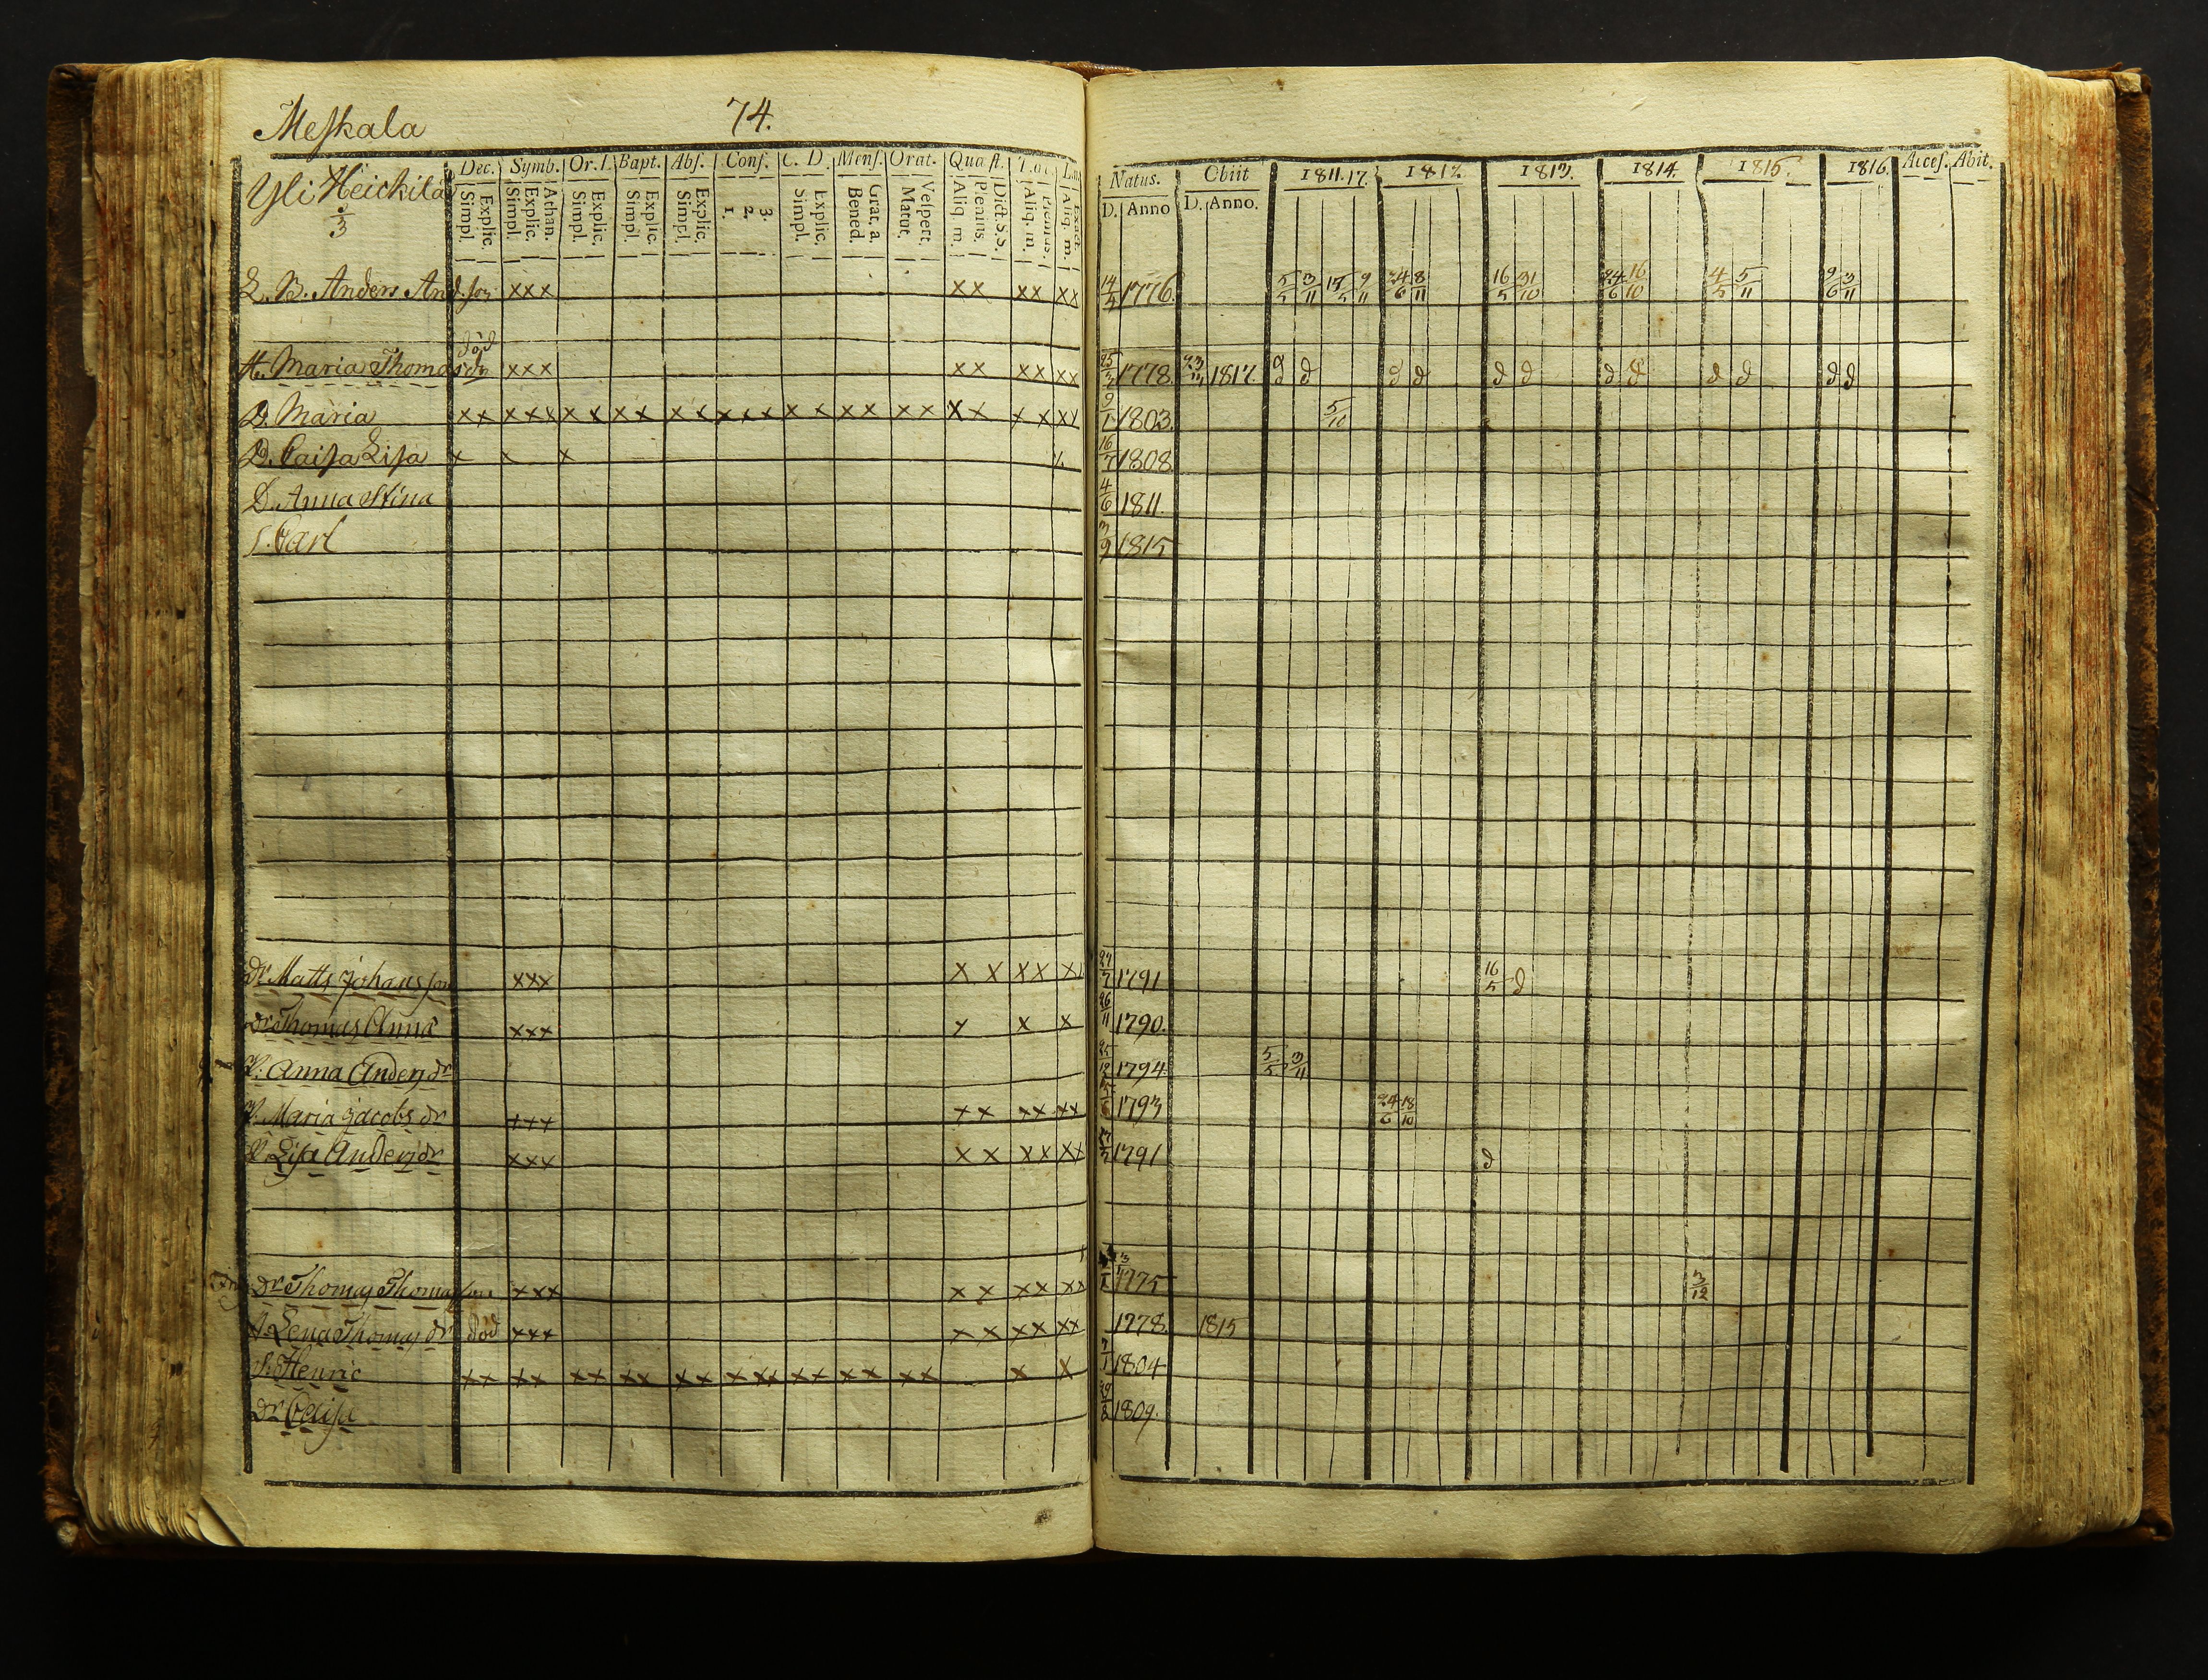 Meskala 74.
Dec. Symb. Or. Bapt. Abs. Conf. C. D. Mens. Orat. Quæst. Natus. Obiit 1811. 17. 1812. 1813. 1814. 1815. 1816. Acces. Abit.
Yli Heickilä
2/3
Explic. Simpl. Athan. Explic. Simpl. Explic. Simpl. Explic. Simpl. Explic. Simpl. 3. 2. 1. Explic. Simpl. Grat. a. Bened. Vespert. Matut. Dict. S.S. Plenius. Aliq. m. Plenius. Aliq. m. Exact. Aliq. m. D. Anno D. Anno.
L. B. Anders And.son xxx xx xx xx 14/5 1776. 5/5 3/11 15/5 9/11 24/6 8/11 16/5 31/10 24/6 16/10 4/5 5/11 9/6 3/11
död
H. Maria Thomasdr xxx xx xx xx 1778. 1817. d d d d d d d d d d d d
D. Maria xx xxx xx xx xx xxx xx xx xx xx xx xx 9/1 1803. 5/10
D. Caisa Lisa x x x x 16/7 1808
D. Anna Stina 4/6 1811.
S. Carl 3/9 1815
Dr Matts Johansson xxx xx xx xx 1791 16/5 d
Dr Thomas Anna xxx x x x 26/11 1790.
P. Anna Andersdr 25/12 1794. 5/5 3/11
P. Maria Jacobsdr xxx xx xx xx 1793 24/6 18/10
P. Lisa Andersdr xxx xx xx xx 1791 d
Dr Thomas Thomasson xxx xx xx xx 1775 3/12
H. Lena Thomasdr död xxx xx xx xx 1778. 1815
S. Henric xx xx xx xx xx xxx xx xx xx x x 1804
Dr Caisa 29/8 1809.